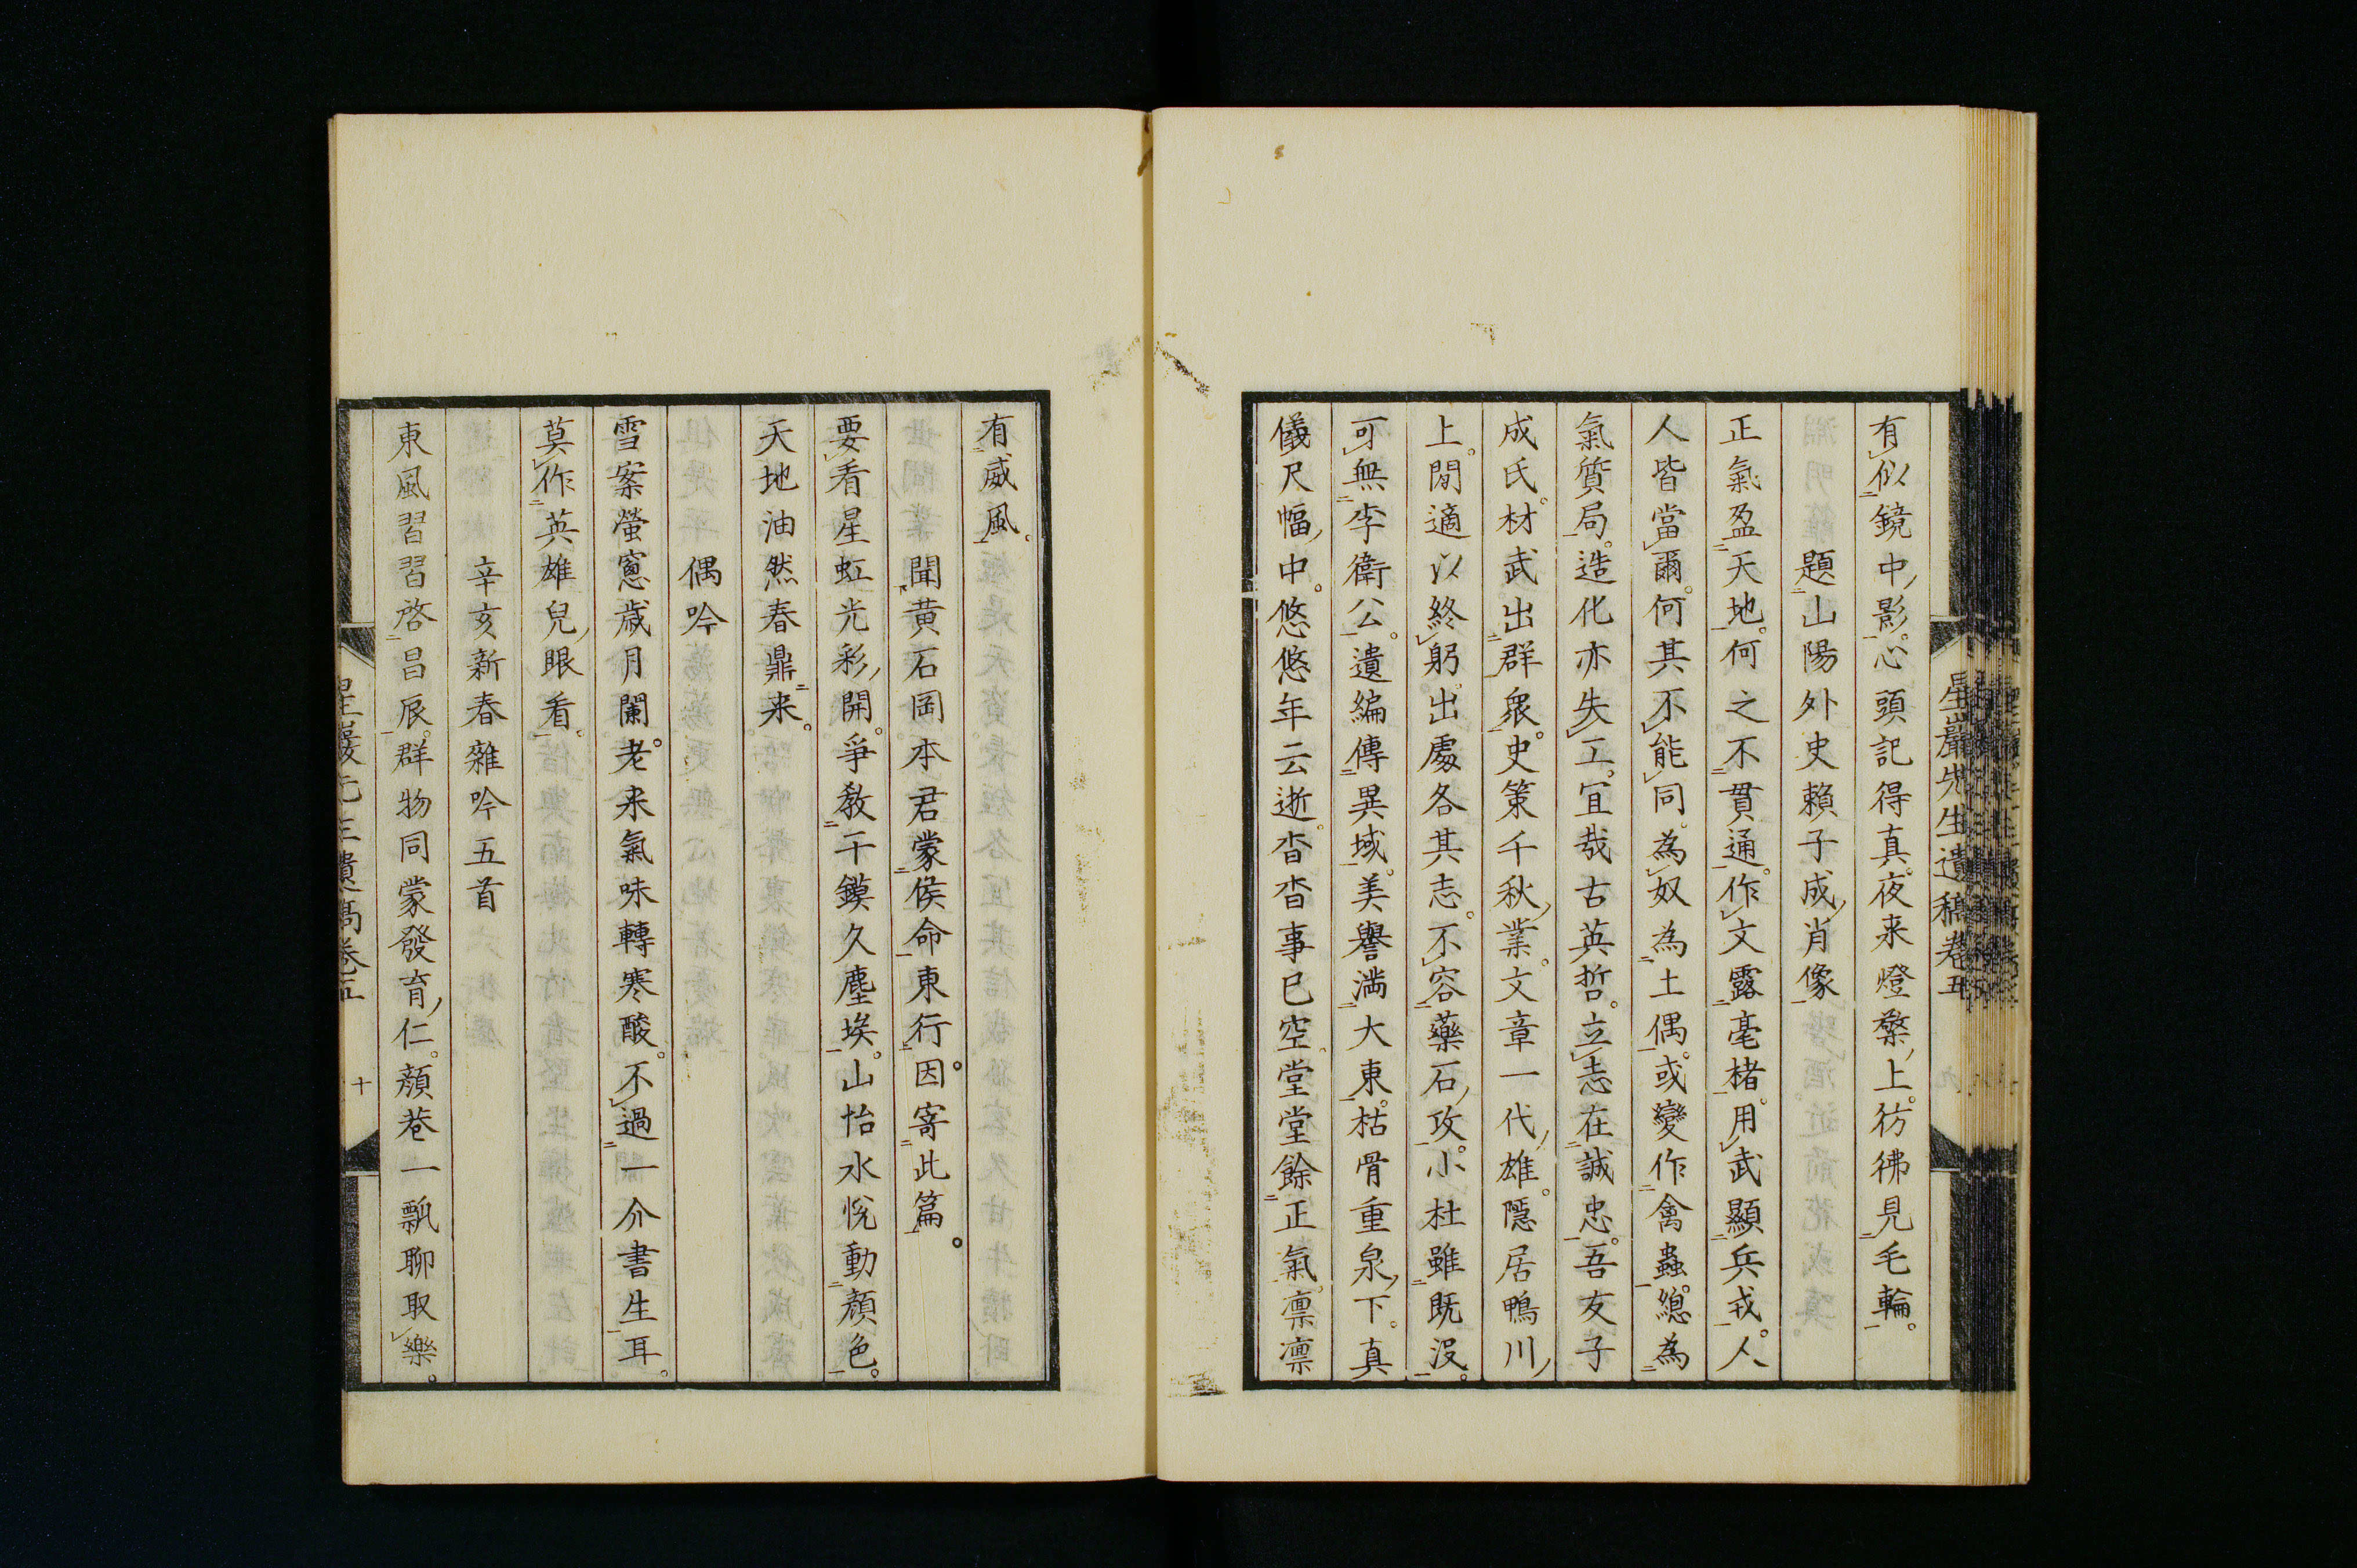 星巖先生遺稿卷五
有似鏡中影。心頭記得真。夜来燈檠上。彷彿見毛輪。
題山陽外史賴子成肖像
正氣盈天地。何之不貫通。作文露毫楮。用武顯兵戎。人
人皆當爾。何其不能同。為奴為土偶。或變作禽蟲。總為
氣質局。造化亦失工。宜哉古英哲。立志在誠忠。吾友子
成氏。材武出群衆。史策千秋業。文章一代雄。隱居鴨川
上。閒適以終躬。出處各其志。不容藥石攻。小杜雖既沒。
可無李衛公。遺編傳異域。美譽満大東。枯骨重泉下。真
儀尺幅中。悠悠年云逝。杳杳事已空。堂堂餘正氣。凛凛
有威風。
聞黄石岡本君蒙侯命東行。因寄此篇。
要看星虹光彩開。爭教干鏌久塵埃。山怡水悅動顔色。
天地油然春鼎来。
偶吟
雪案螢窻歳月闌。老来氣味轉寒酸。不過一介書生耳。
莫作英雄兒眼看。
辛亥新春雜吟五首
東風習習啓昌辰。群物同蒙發育仁。顔巷一瓢聊取樂。
十